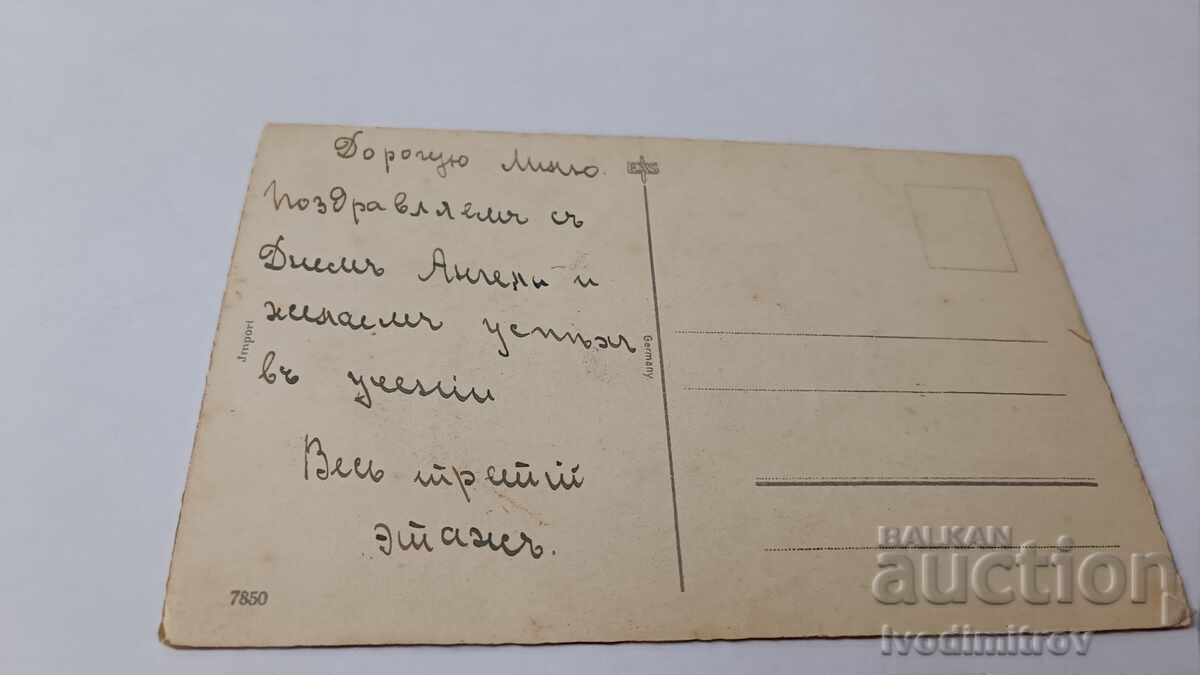 Дорогую Миню.
Поздравляемъ съ
Днемъ Ангела и
желаемъ успѣха
въ ученіи
Весь третій
этажъ.
EAS
Import
Germany
7850
BALKAN
auction
Ivodimitrov